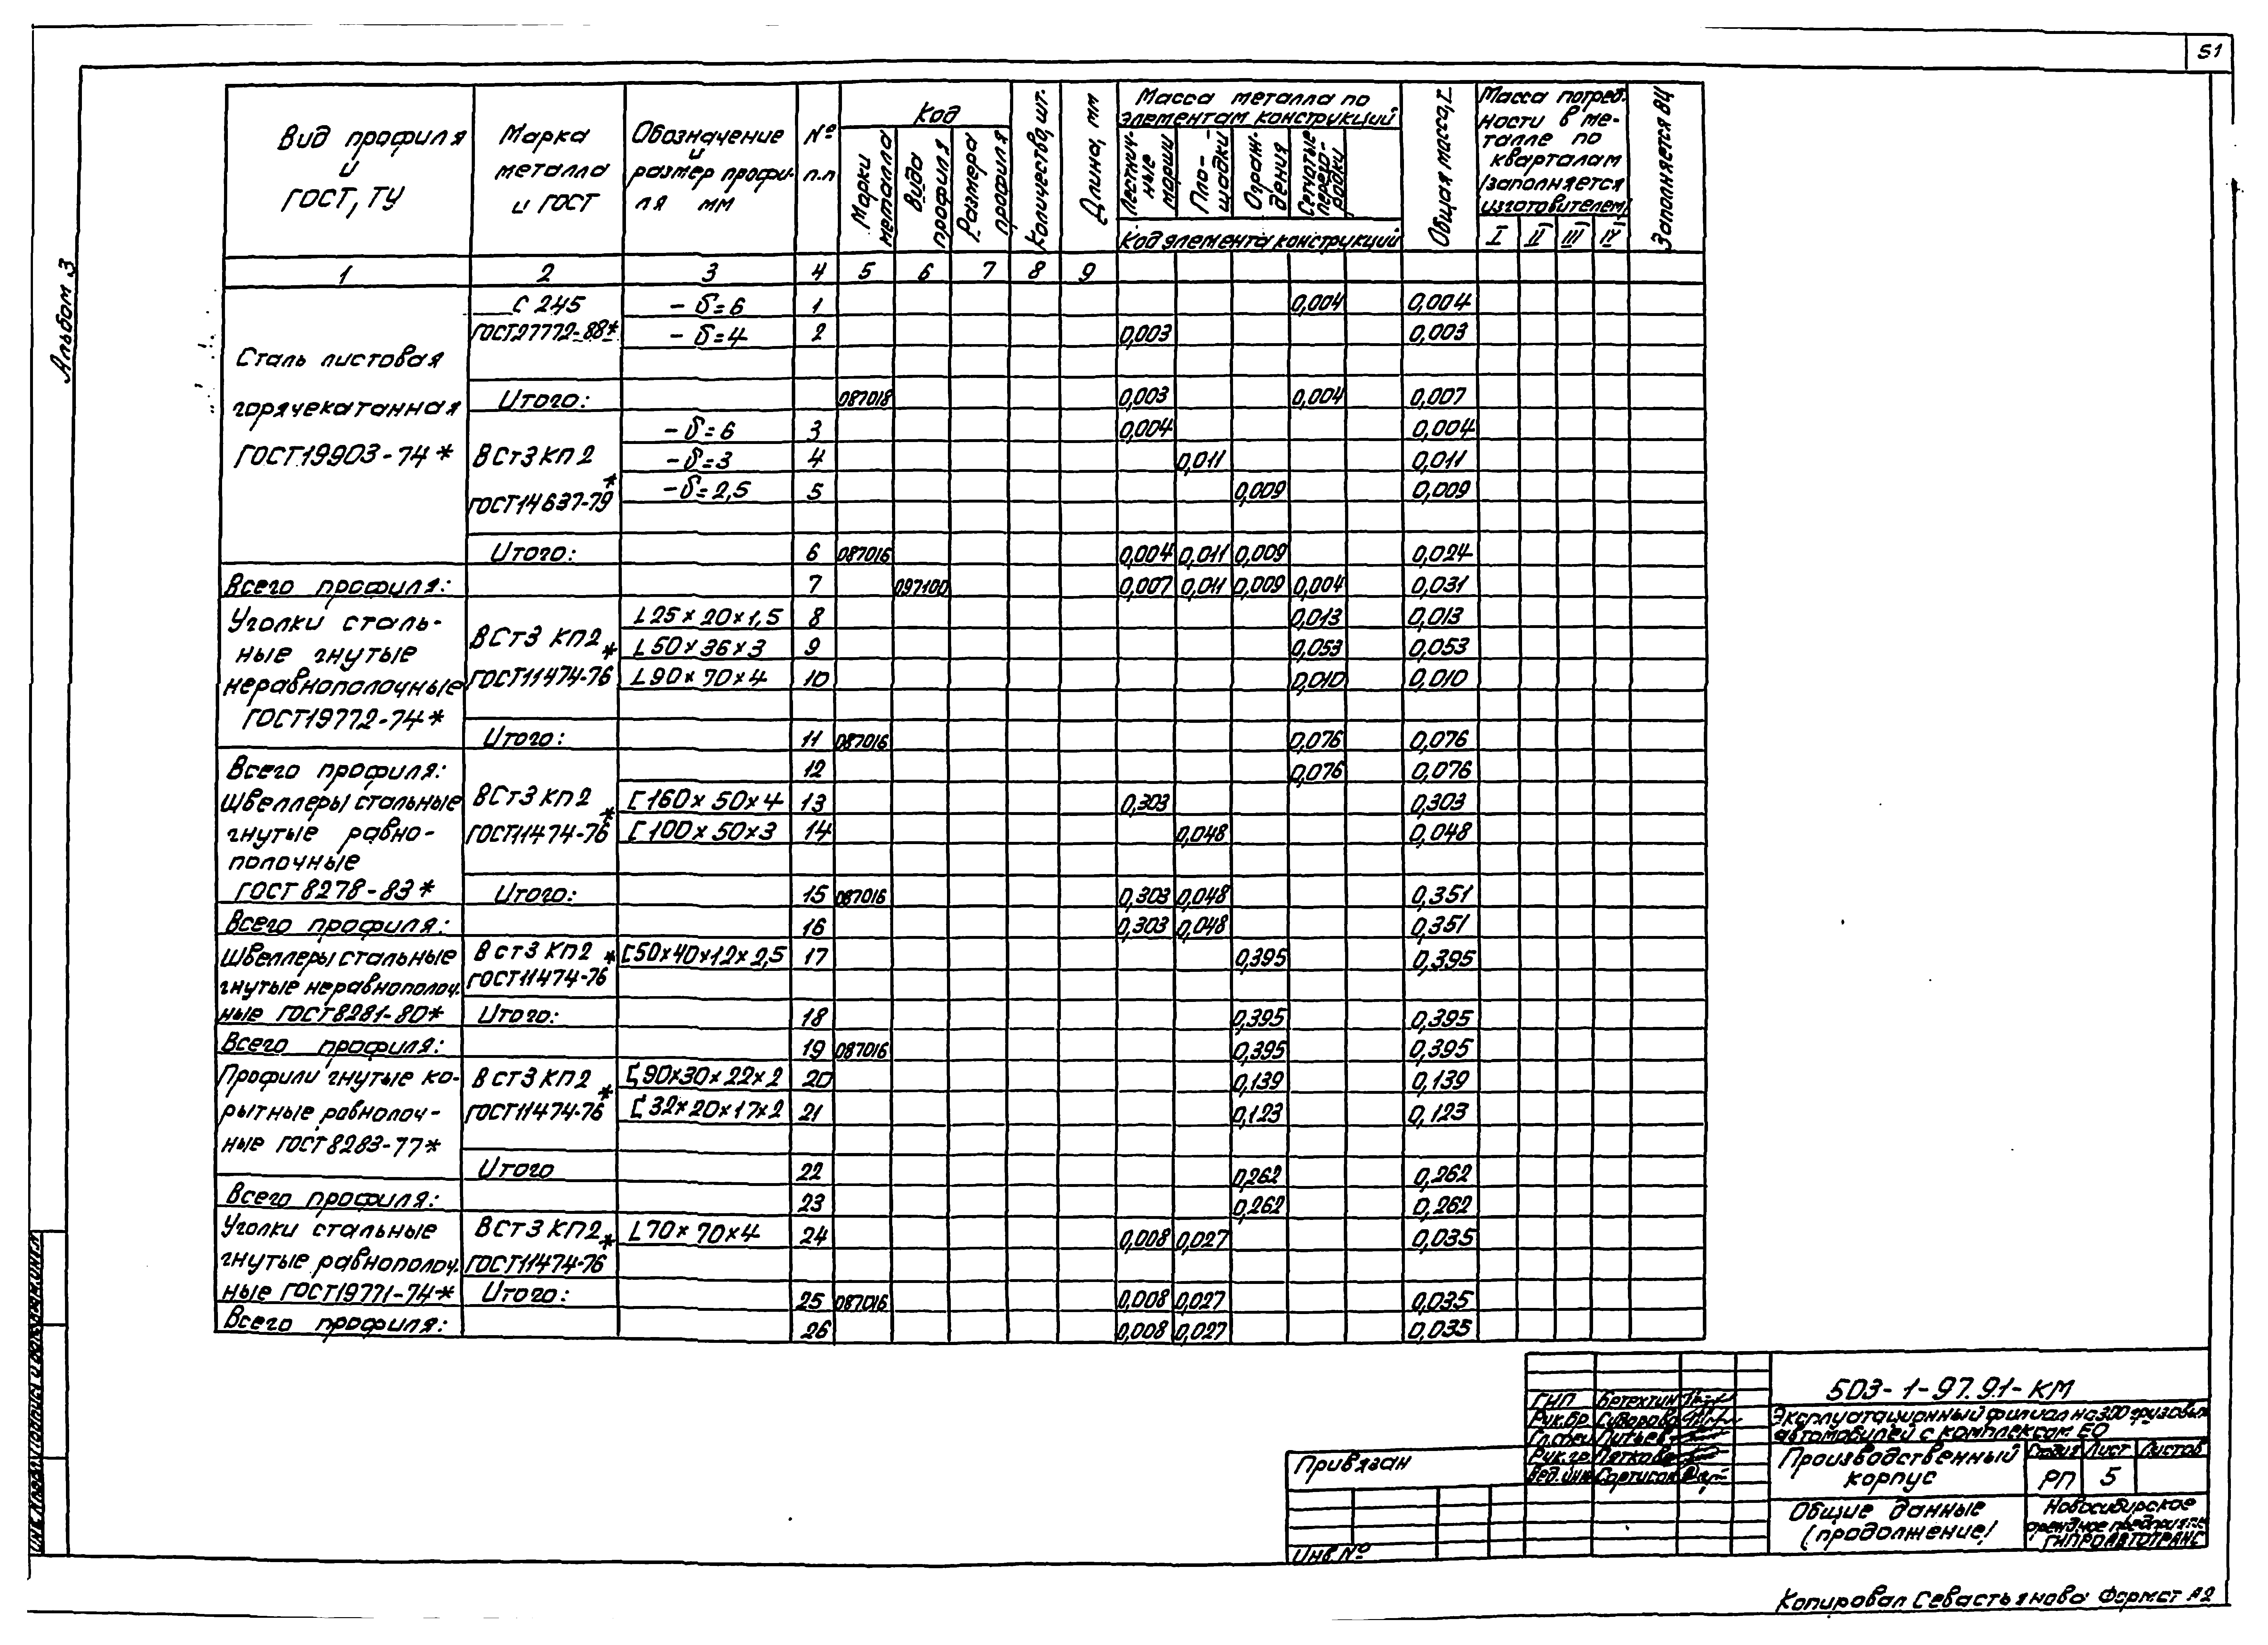 51
Альбом 3
Вид профиля и ГОСТ, ТУ
Марка металла и ГОСТ
Обозначение и размер профиля мм
№ п.п
Код
Марки металла
Вида профиля
Размера профиля
Количество, шт.
Длина, мм
Масса металла по элементам конструкций
Лестничные марши
Площадки
Ограждения
Сетчатые перегородки
Код элемента конструкций
Общая масса, т
Масса потребности в металле по кварталам /заполняется изготовителем/
I II III IV
Заполняется ВЦ
1 2 3 4 5 6 7 8 9
С 245 - δ=6 1 0,004 0,004
ГОСТ27772-88* - δ=4 2 0,003 0,003
Сталь листовая
Итого: 087018 0,003 0,004 0,007
горячекатанная
- δ=6 3 0,004 0,004
ГОСТ19903-74* ВСт3 КП2 - δ=3 4 0,011 0,011
ГОСТ14637-79* - δ=2,5 5 0,009 0,009
Итого: 6 087016 0,004 0,011 0,009 0,024
Всего профиля: 7 097100 0,007 0,011 0,009 0,004 0,031
Уголки сталь- L25×20×1,5 8 0,013 0,013
ные гнутые ВСт3 КП2 L50×36×3 9 0,053 0,053
неравнополочные ГОСТ11474-76* L90×70×4 10 0,010 0,010
ГОСТ19772-74*
Итого: 11 087016 0,076 0,076
Всего профиля: 12 0,076 0,076
Швеллеры стальные ВСт3 КП2 [160×50×4 13 0,303 0,303
гнутые равно- ГОСТ11474-76* [100×50×3 14 0,048 0,048
полочные
ГОСТ 8278-83* Итого: 15 087016 0,303 0,048 0,351
Всего профиля: 16 0,303 0,048 0,351
Швеллеры стальные ВСт3 КП2 [50×40×12×2,5 17 0,395 0,395
гнутые неравнополоч. ГОСТ11474-76*
ные ГОСТ8281-80* Итого: 18 0,395 0,395
Всего профиля: 19 087016 0,395 0,395
Профили гнутые ко- ВСт3 КП2 [90×30×22×2 20 0,139 0,139
рытные равнополоч- ГОСТ11474-76* [32×20×17×2 21 0,123 0,123
ные ГОСТ8283-77*
Итого 22 0,262 0,262
Всего профиля: 23 0,262 0,262
Уголки стальные ВСт3 КП2 L70×70×4 24 0,008 0,027 0,035
гнутые равнополоч. ГОСТ11474-76*
ные ГОСТ19771-74* Итого: 25 087016 0,008 0,027 0,035
Всего профиля: 26 0,008 0,027 0,035
503-1-97.91-КМ
ГИП Бетехтин
Рук.бр. Суворова
Гл.спец Питьев
Рук.гр. Пяткова
Вед.инж
Эксплуатационный филиал на 300 грузовых
автомобилей с комплексом ЕО
Производственный корпус
Стадия Лист Листов
РП 5
Общие данные
(продолжение)
Новосибирское
арендное предприятие
ГИПРОАВТОТРАНС
Привязан
Инв №
Инв. № подл Подпись и дата Взам.инв.№
Копировал Севастьянова Формат А2